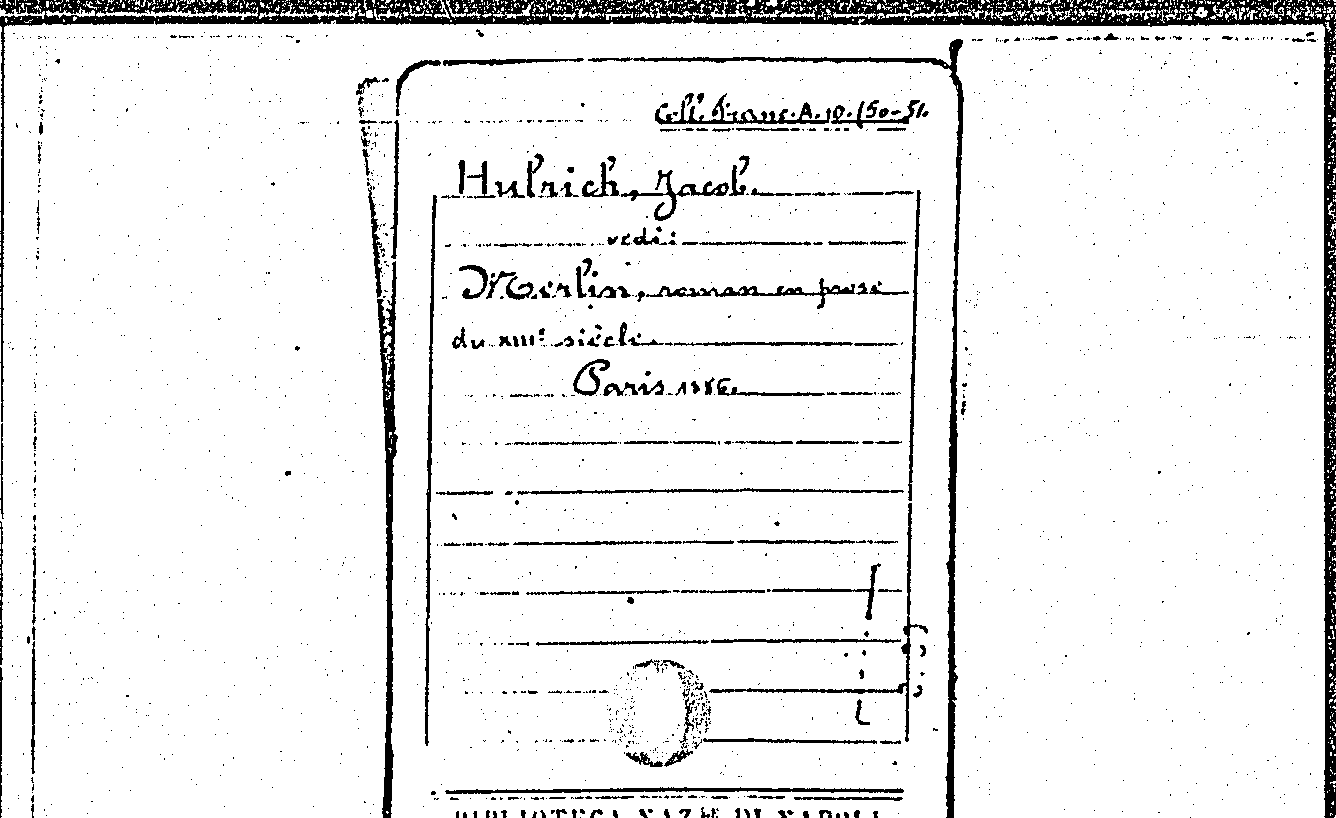 Coll. Franc. A. 10. (50-51.
Hulrich, Jacob.
vedi:
Merlin, roman en prose
du XIIIe siècle.
Paris 1886.
BIBLIOTECA NAZ.LE DI NAPOLI